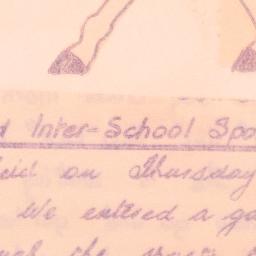 d Inter-School Spo
eld on Thursday
We entered a ga
the